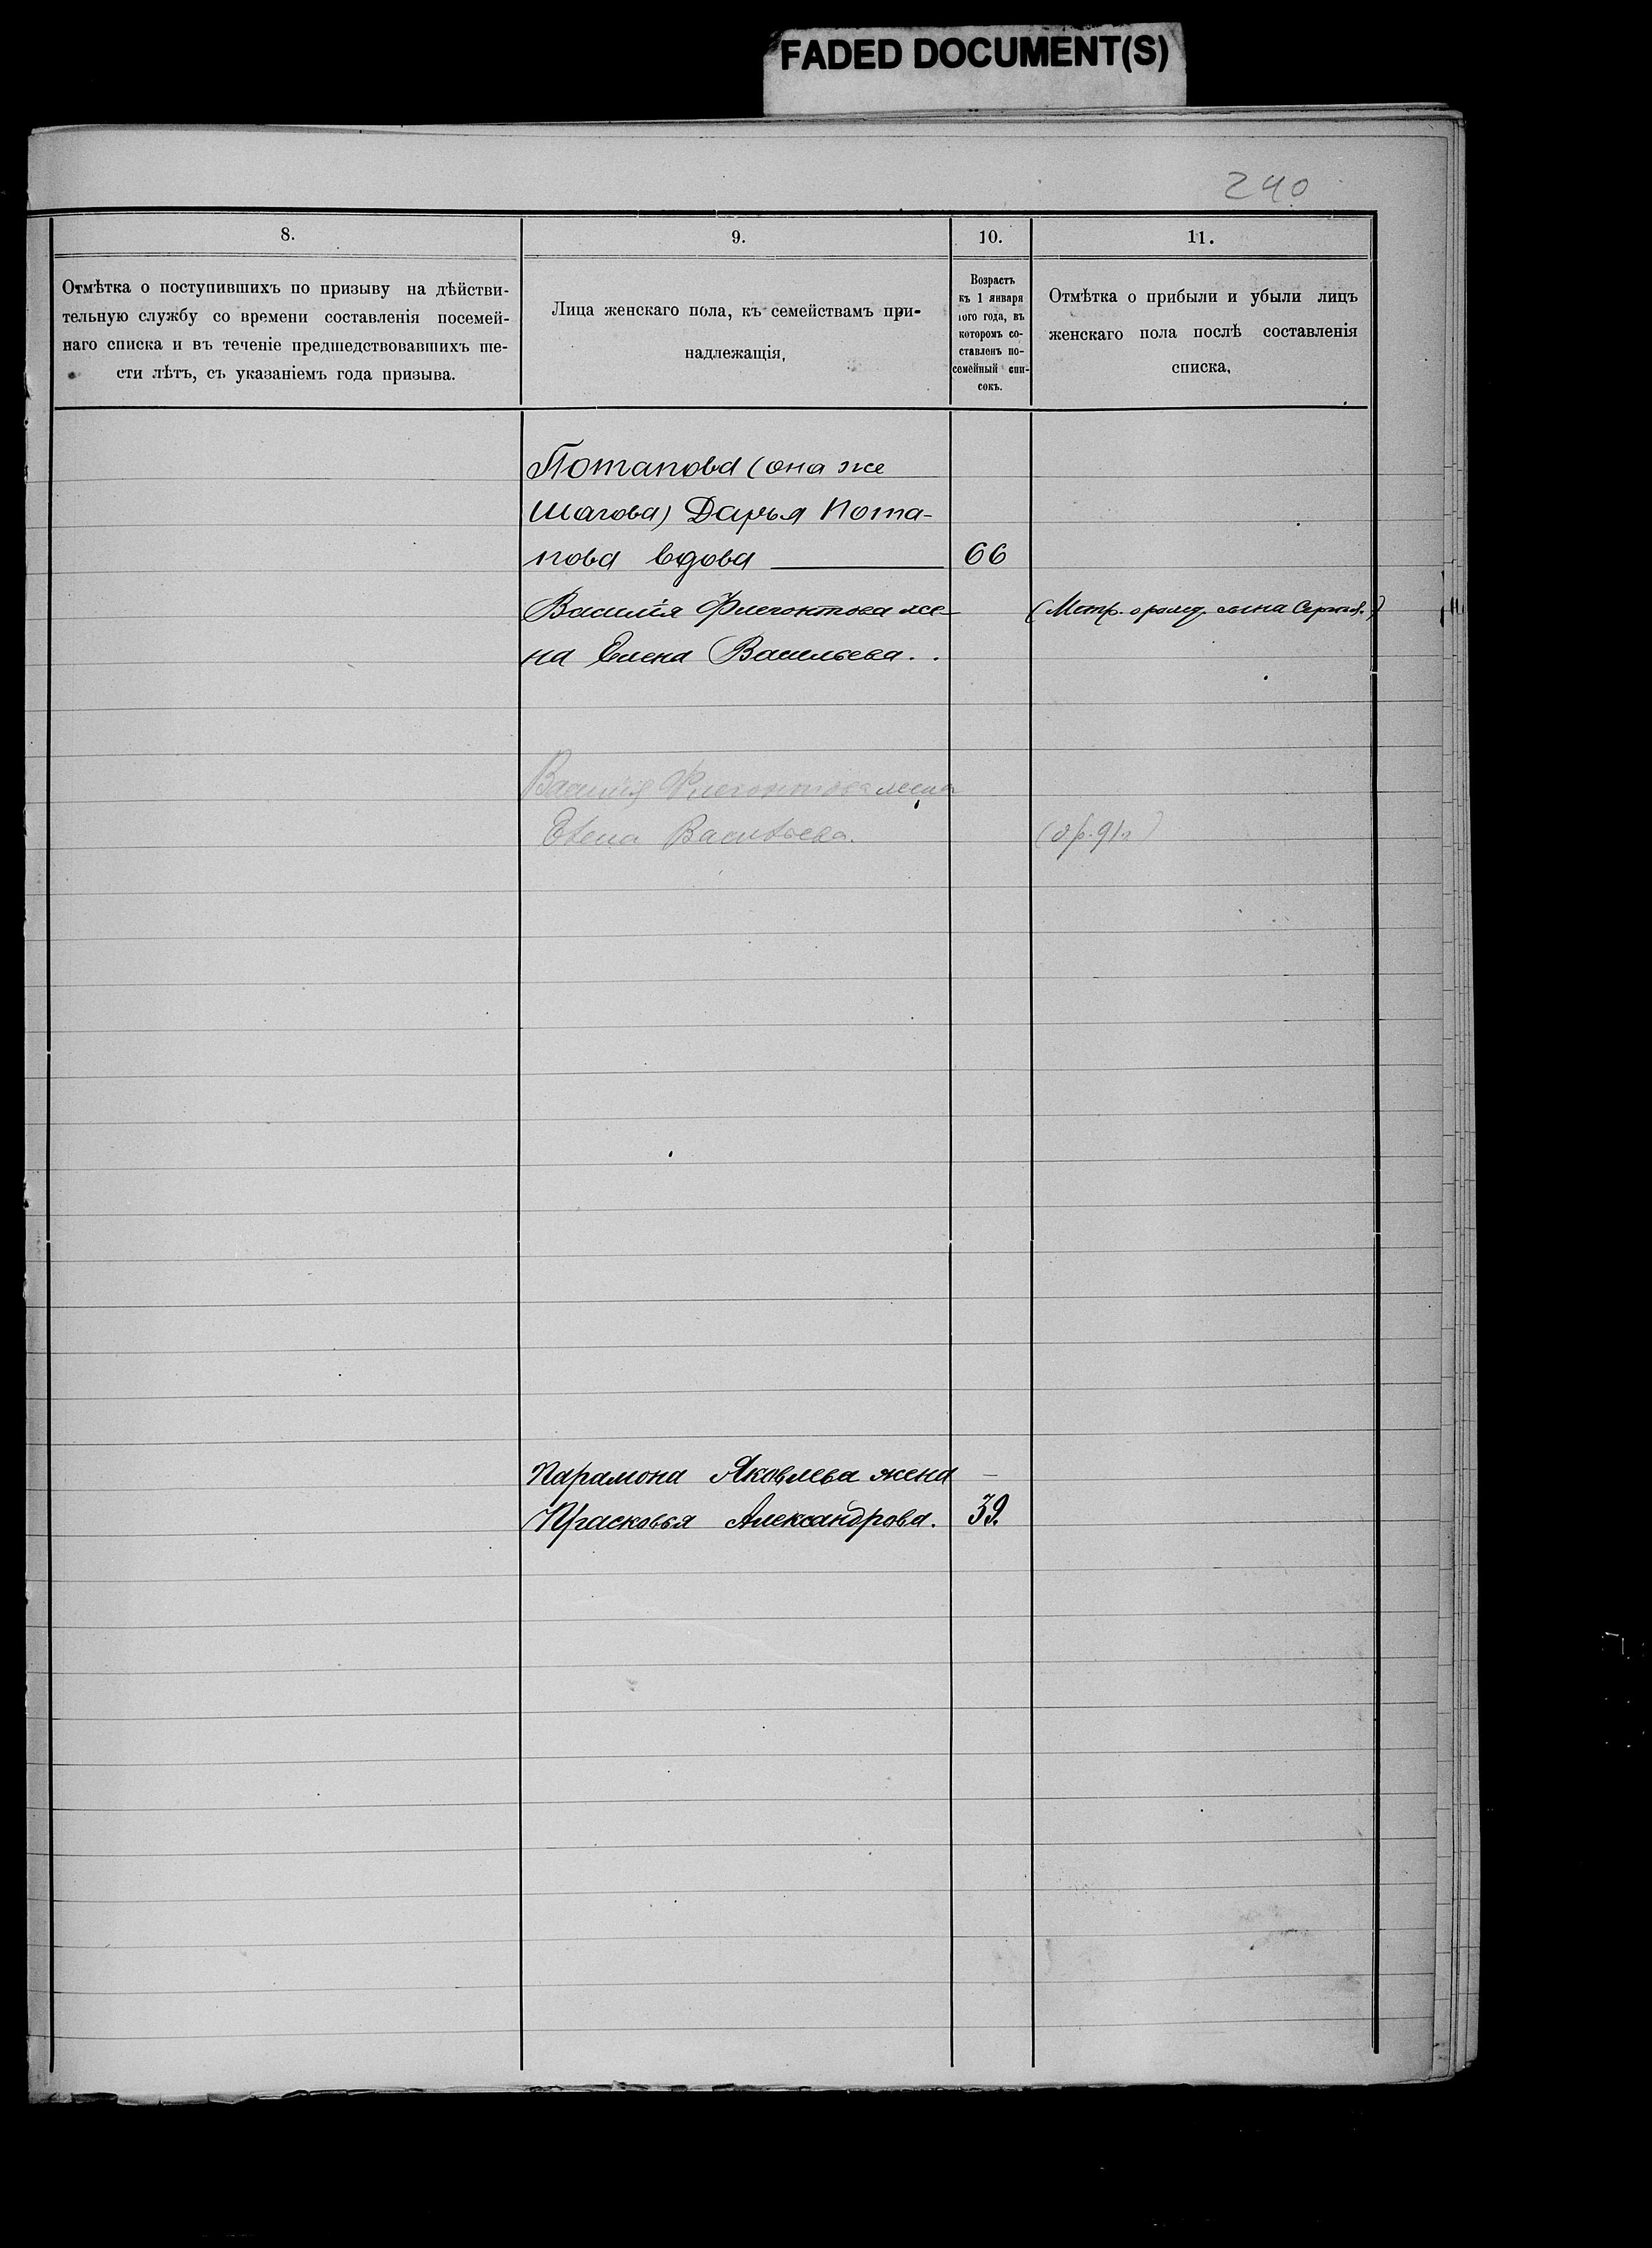 FADED DOCUMENT(S)
240
8.
9.
10.
11.
Отмѣтка о поступившихъ по призыву на дѣйстви-
тельную службу со времени составленія посемей-
наго списка и въ теченіе предшедствовавшихъ ше-
сти лѣтъ, съ указаніемъ года призыва.
Лица женскаго пола, къ семействамъ при-
надлежащія,
Возрастъ
къ 1 января
того года, въ
которомъ со-
ставленъ по-
семейный спи-
сокъ.
Отмѣтка о прибыли и убыли лицъ
женскаго пола послѣ составленія
списка,
Потапова (она же
Шагова) Дарья Пота-
пова вдова 66
Василія Флегонтова же-
(Метр. о рожд. сына Сергѣя.)
на Елена Васильева. .
Василія Флегонтова жена
Елена Васильева.
Парамона Яковлева жена —
Прасковья Александрова. 39.